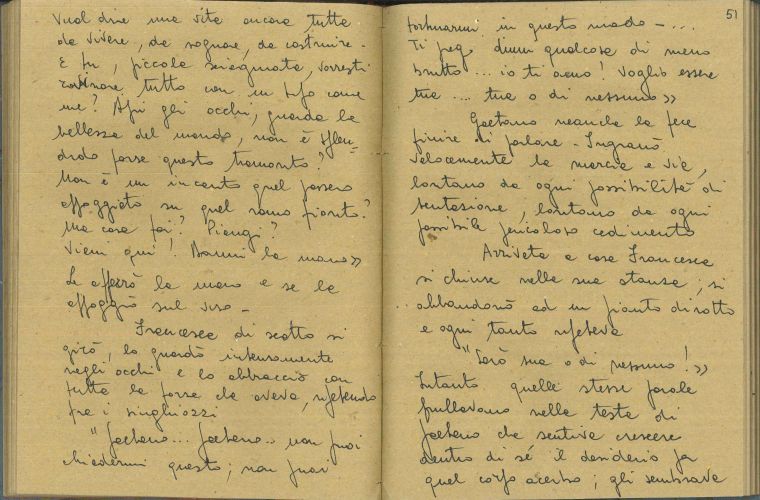 Vuol dire una vita ancora tutta
da vivere, da sognare, da costruire -
E tu, piccola sciagurata, vorresti
rovinare tutto con un tipo come
me? Apri gli occhi, guarda la
bellezza del mondo, non è splen-
dido forse questo tramonto?
Non è un incanto quel passero
appoggiato su quel ramo fiorito?
Ma cosa fai? Piangi?
Vieni qui! Dammi la mano»
Le afferrò la mano e se la
appoggiò sul viso -
Francesca di scatto si
girò, lo guardò intensamente
negli occhi e lo abbracciò con
tutta la forza che aveva, ripetendo
fra i singhiozzi
"Gaetano... Gaetano.. non puoi
chiedermi questo; non puoi
51
torturarmi in questo modo - ...
Ti prego dimmi qualcosa di meno
brutto ... io ti amo! Voglio essere
tua .... tua o di nessuno»
Gaetano neanche la fece
finire di parlare - Ingranò
velocemente la marcia e via,
lontano da ogni possibilità di
tentazione, lontano da ogni
possibile pericoloso cedimento
Arrivata a casa Francesca
si chiuse nella sua stanza; si
abbandonò ad un pianto dirotto
e ogni tanto ripeteva
"Sarò sua o di nessuno!»
Intanto quelle stesse parole
frullavano nella testa di
Gaetano che sentiva crescere
dentro di sé il desiderio per
quel corpo acerbo; gli sembrava